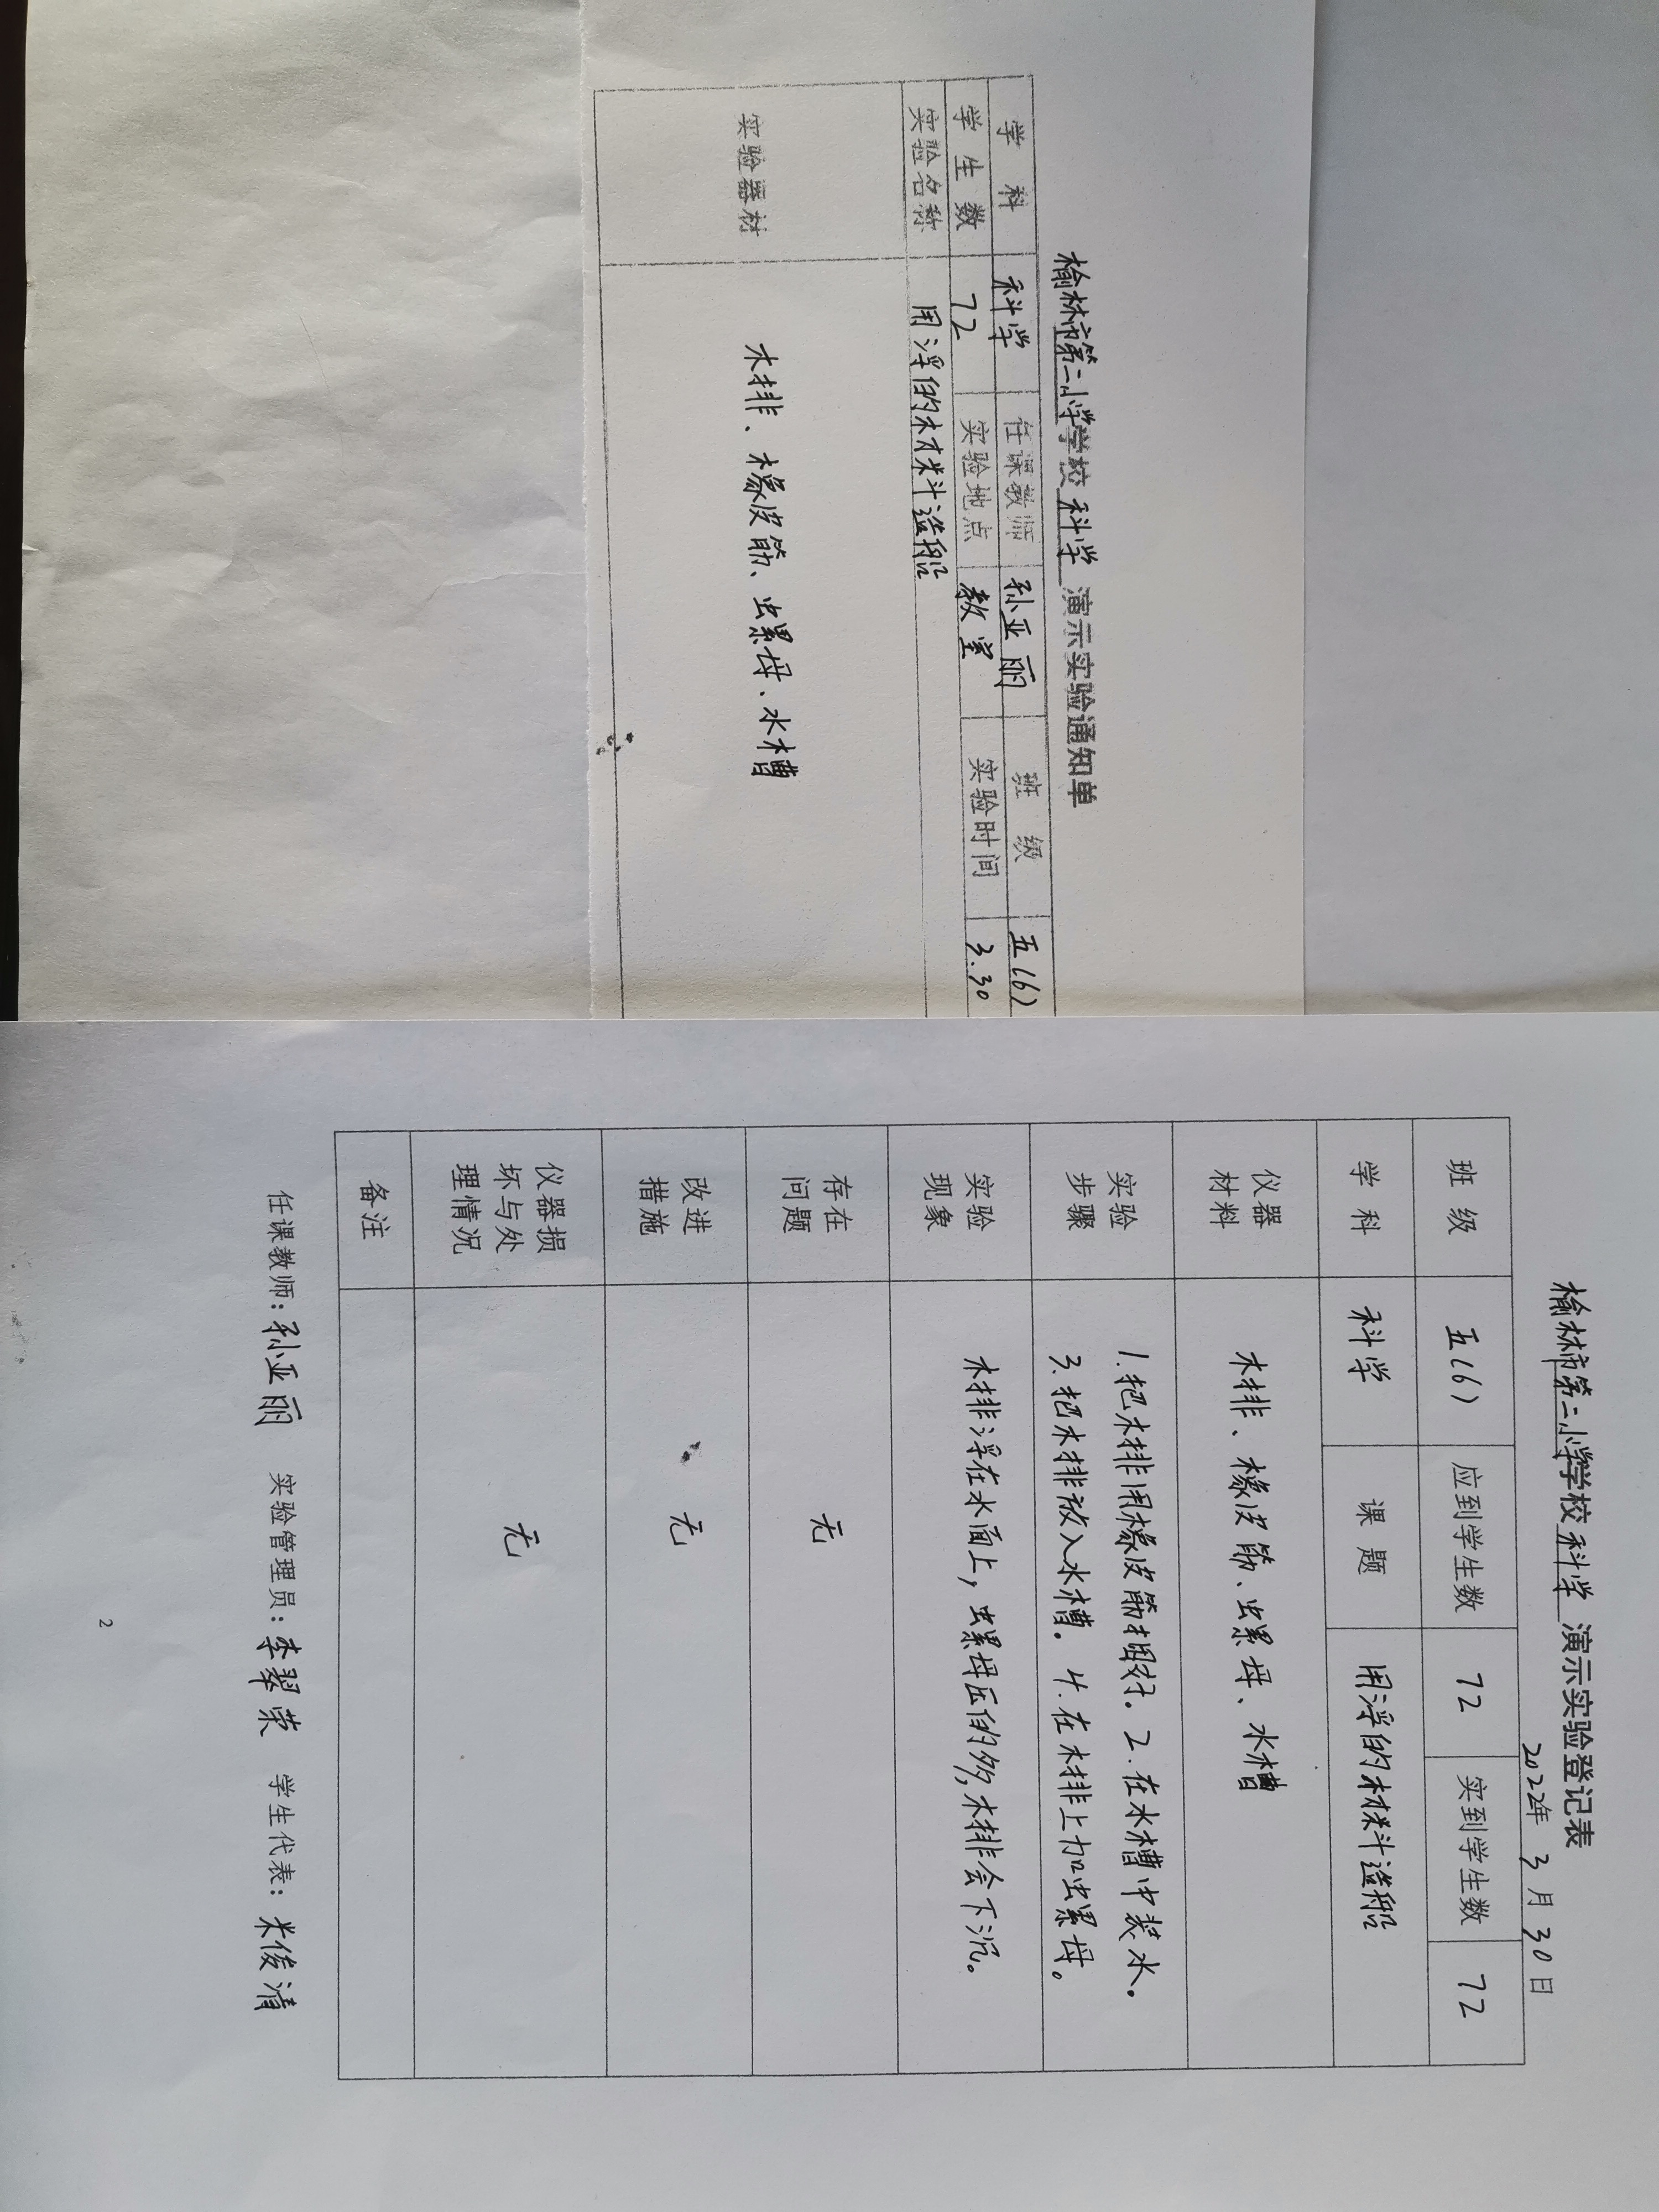 榆林市第二小学学校 科学 演示实验通知单
学 科 科学 任课教师 孙亚丽 班 级 五(6)
学 生 数 72 实验地点 教室 实验时间 3.30
实验名称 用浮的材料造船
实验器材 木排、橡皮筋、螺母、水槽
榆林市第二小学学校 科学 演示实验登记表
2022年 3月 30日
班 级 五(6) 应到学生数 72 实到学生数 72
学 科 科学 课 题 用浮的材料造船
仪器
材料
木排、橡皮筋、螺母、水槽
实验
步骤
1.把木排用橡皮筋捆好。2.在水槽中装水。
3.把木排放入水槽。4.在木排上加螺母。
实验
现象
木排浮在水面上,螺母压的多,木排会下沉。
存在
问题
无
改进
措施
无
仪器损
坏与处
理情况
无
备注
任课教师:孙亚丽 实验管理员:李翠荣 学生代表:米俊清
2